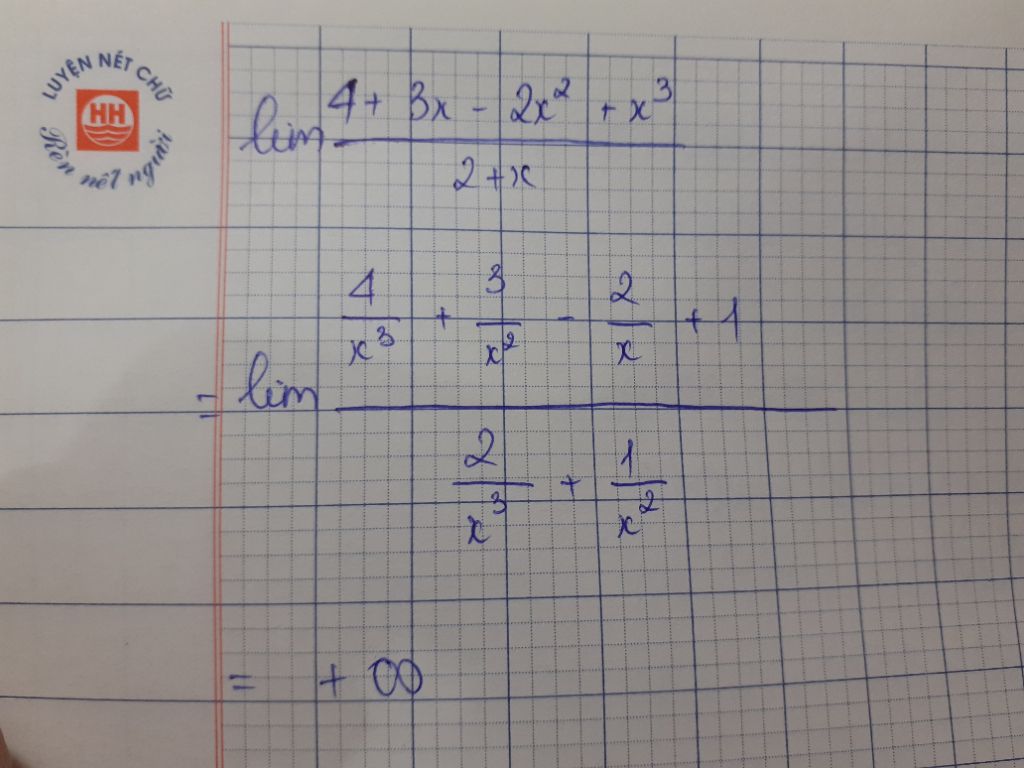 LUYỆN NÉT CHỮ
HH
Rèn nết người
lim (4 + 3x - 2x² + x³) / (2 + x)
= lim (4/x³ + 3/x² - 2/x + 1) / (2/x³ + 1/x²)
= + ∞